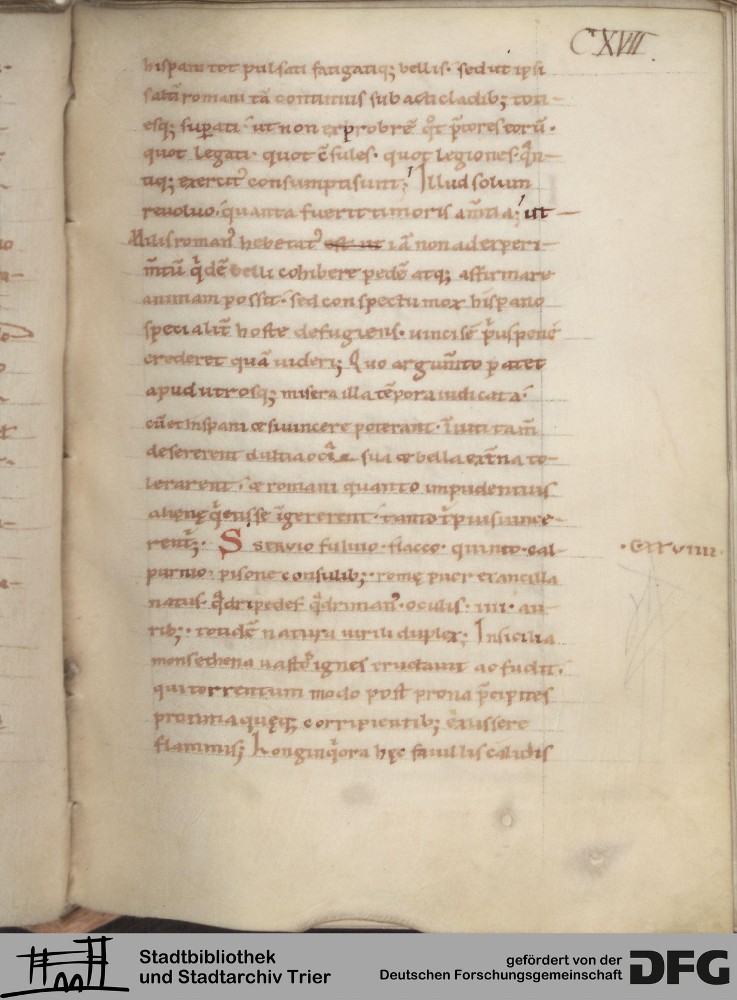 CXVII.
hispani tot pulsati fatigatiq; bellis· sed ut ipsi
saltī romani tā continuis sub acti cladib; toti-
esq; supati· ut non exprobrē qͦt p̄tores eorū·
quot legati· quot c̄sules· quot legiones· qͣn-
tiq; exercit᾽ consumpti sunt; Illud solum
reuoluo· quanta fuerit timoris am̄tia; ut
Milis roman᾽ hebetat᾽ est ut iā non ad experi-
m̄tū qͥdē belli cohibere pedē atq; affirmare
animam possit· sed conspectu mox hispano
specialit̄ hoste defugiens· uinci sē p̄us pene
crederet quā uideri; Quo argum̄to patet
apud utrosq; misera illa tēpora iudicata·
cū et hispani &si uincere poterant· īuiti tam̄
desererent dulcia ocia sua & bella ext̄na to-
lerarent· & romani quanto impudentius
alienę qͥeti sse īgererent· tanto t̄pius uince-
rent᾽;· S seruio fuluio· flacco· quinto· cal-
purnio· pisone consulib;· romę puer ex ancilla
natus qͣdripedes qͣdriman᾽· oculis· IIII· au-
rib;· totidē natura uirili duplex; In sicilia
mons ethena uastͦ ignes eructauit ac fudit·
qui torrentum modo post prona p̄cipites
proxima quęq; corripientib; exussere
flammis; Longinqͥora hęc fauillis calidis
Stadtbibliothek
und Stadtarchiv Trier
gefördert von der
Deutschen Forschungsgemeinschaft
DFG